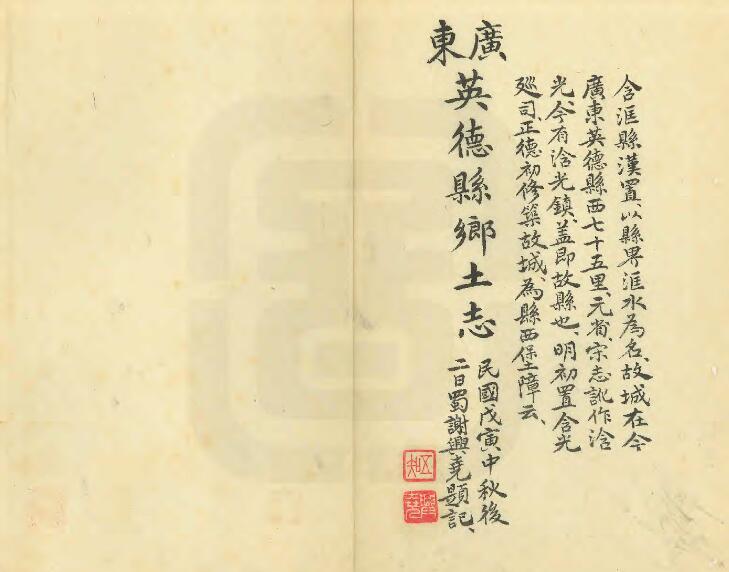 含洭縣漢置、以縣界洭水為名、故城在今
廣東英德縣西七十五里、元省、宋志訛作浛
光、今有浛光鎮、蓋即故縣也、明初置含光
廵司、正德初修築故城、為縣西保障云、
廣東
英德縣鄉土志
民國戊寅中秋後
二日蜀謝興堯題記、
五知